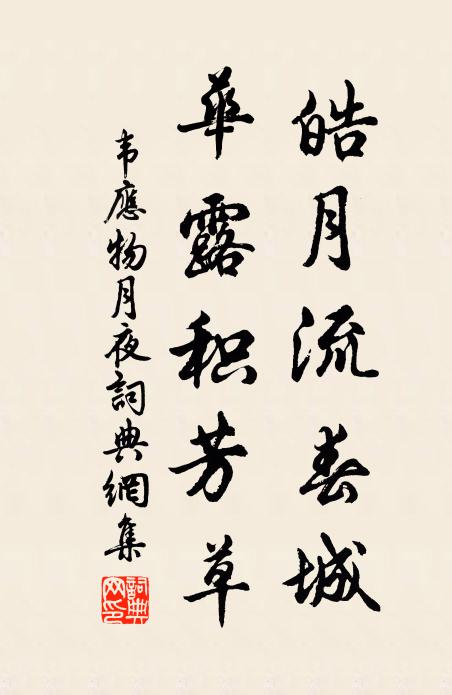 皓月流春城
華露积芳草
韦應物月夜詞典網集
詞典網印